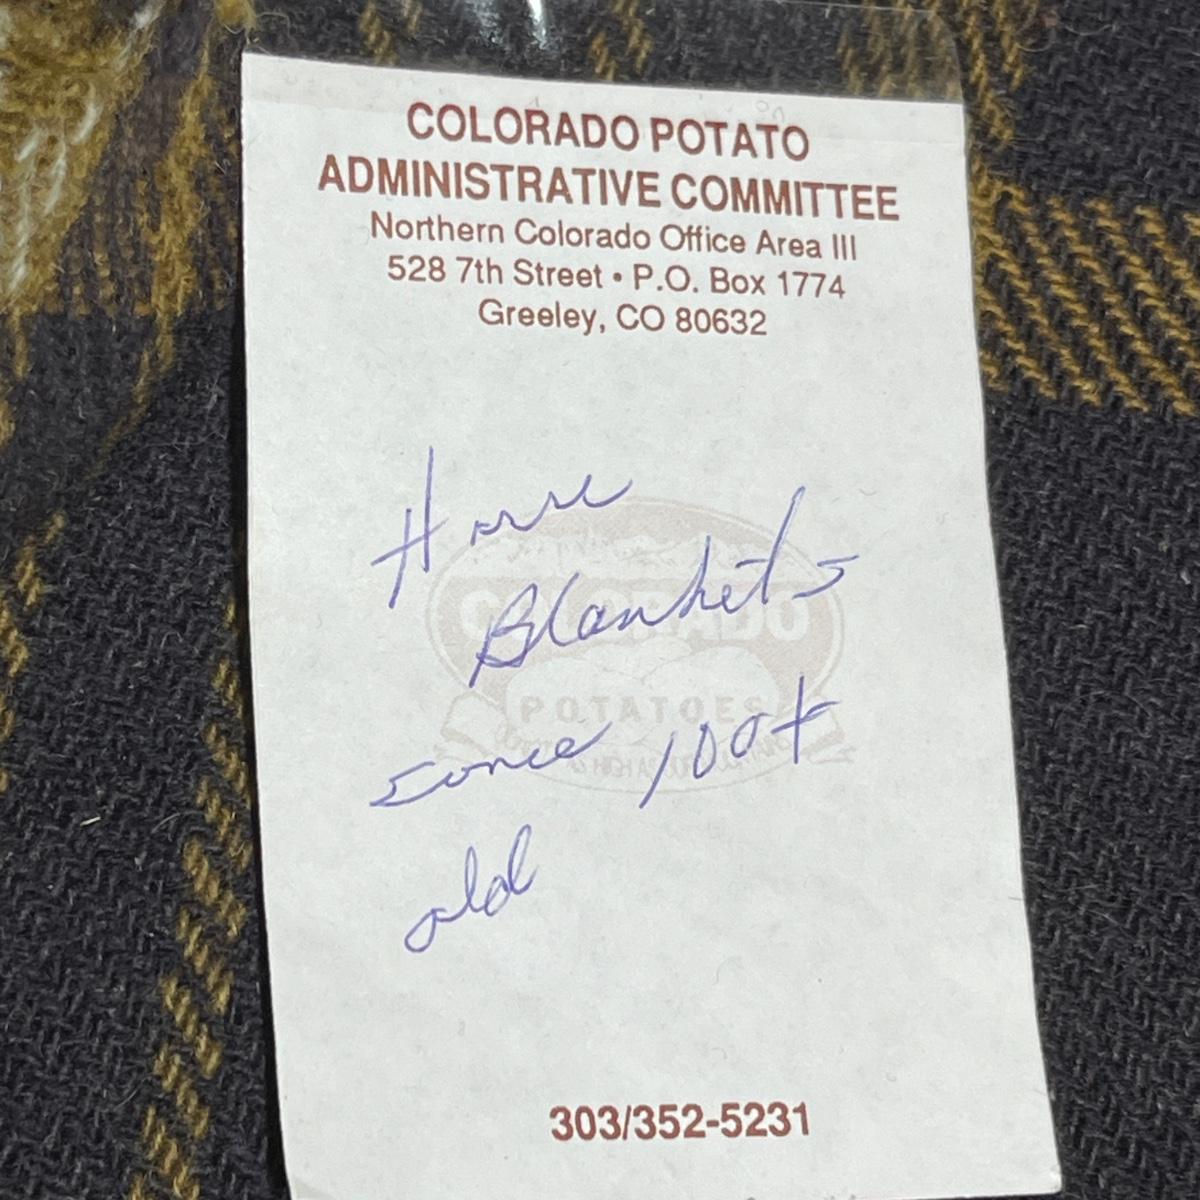 COLORADO POTATO
ADMINISTRATIVE COMMITTEE
Northern Colorado Office Area III
528 7th Street • P.O. Box 1774
Greeley, CO 80632
Horse
Blankets
some 100+
old
COLORADO
POTATOES
303/352-5231